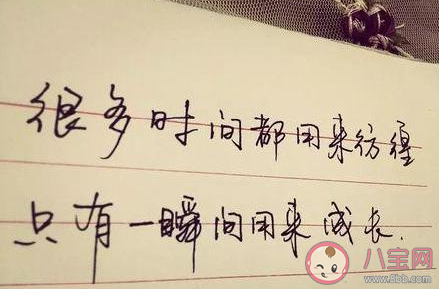 很多时间都用来彷徨
只有一瞬间用来成长.
八宝网
www.8bb.com